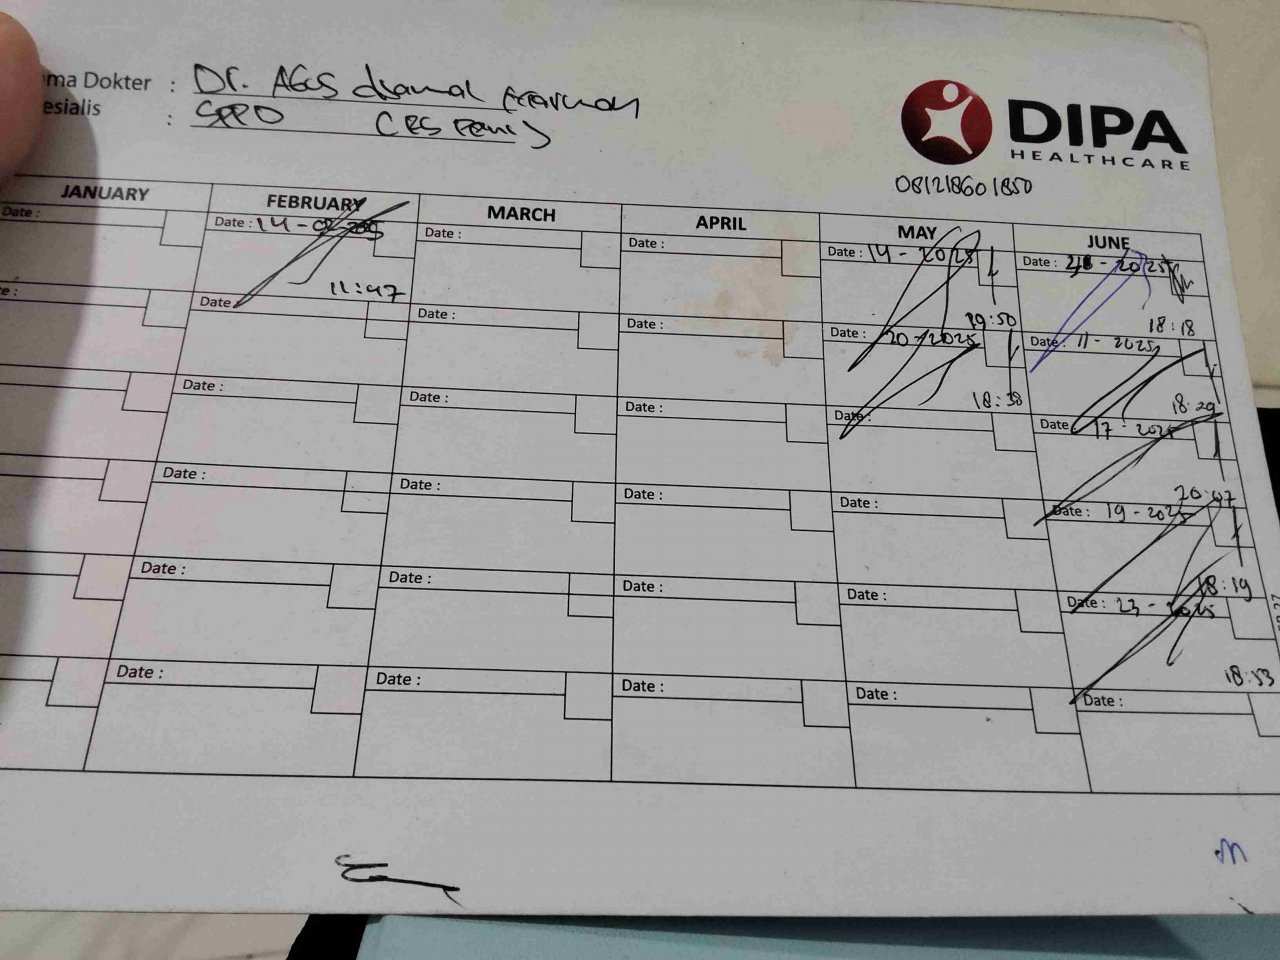 ma Dokter : Dr. AGUS
esialis : SPPD
DIPA
HEALTHCARE
081218601850
JANUARY
FEBRUARY
MARCH
APRIL
MAY
JUNE
Date :
Date : 14-02-2025
11:47
Date :
Date :
Date : 14 - 2025
19:50
Date : - 2025
18:18
e :
Date
Date :
Date :
Date : 20-2025
18:38
Date : 11 - 2025
18:29
Date :
Date :
Date :
Date :
Date 17 - 2025
20:47
Date :
Date :
Date :
Date :
Date : 19-2025
18:19
Date :
Date :
Date :
Date :
Date : 23 - 2025
18:53
Date :
Date :
Date :
Date :
Date :